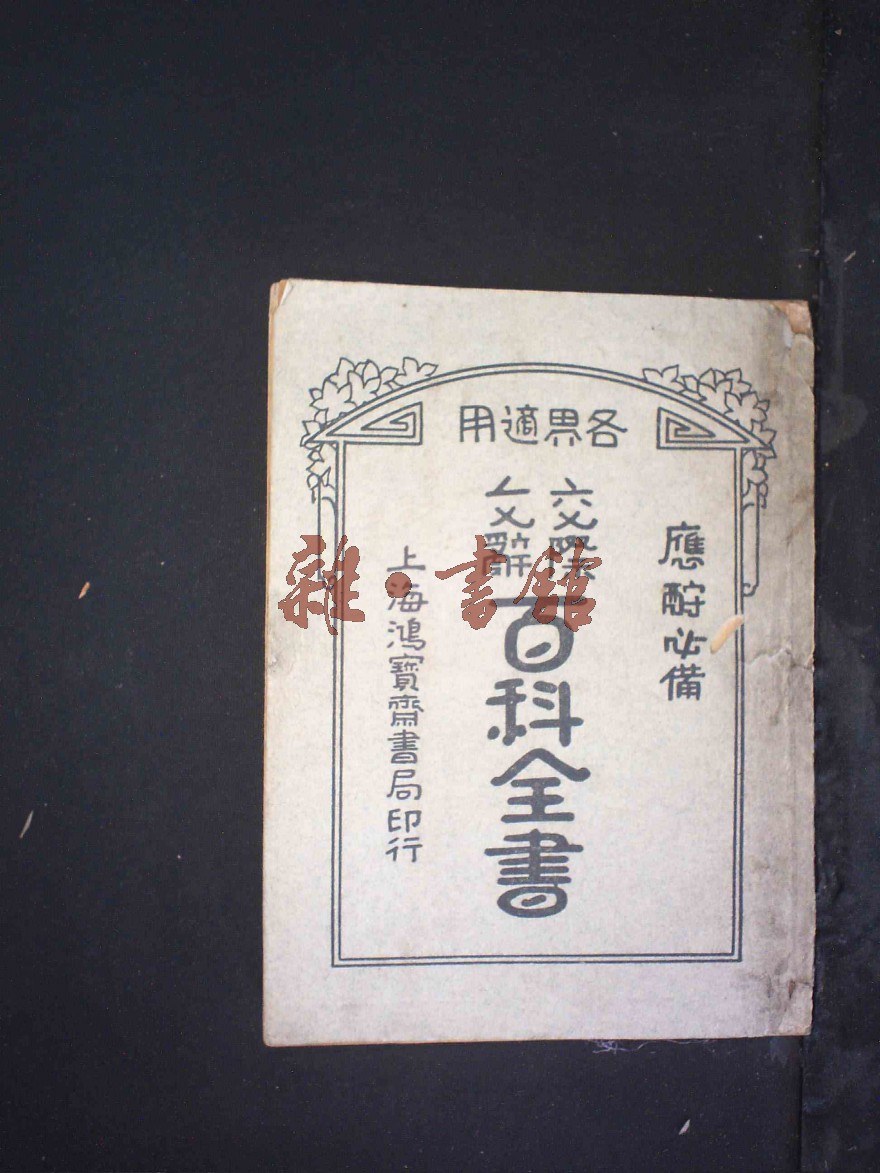 各界適用
應酧必備
交際
文辭
百科全書
上海鴻寶齋書局印行
雜·書館